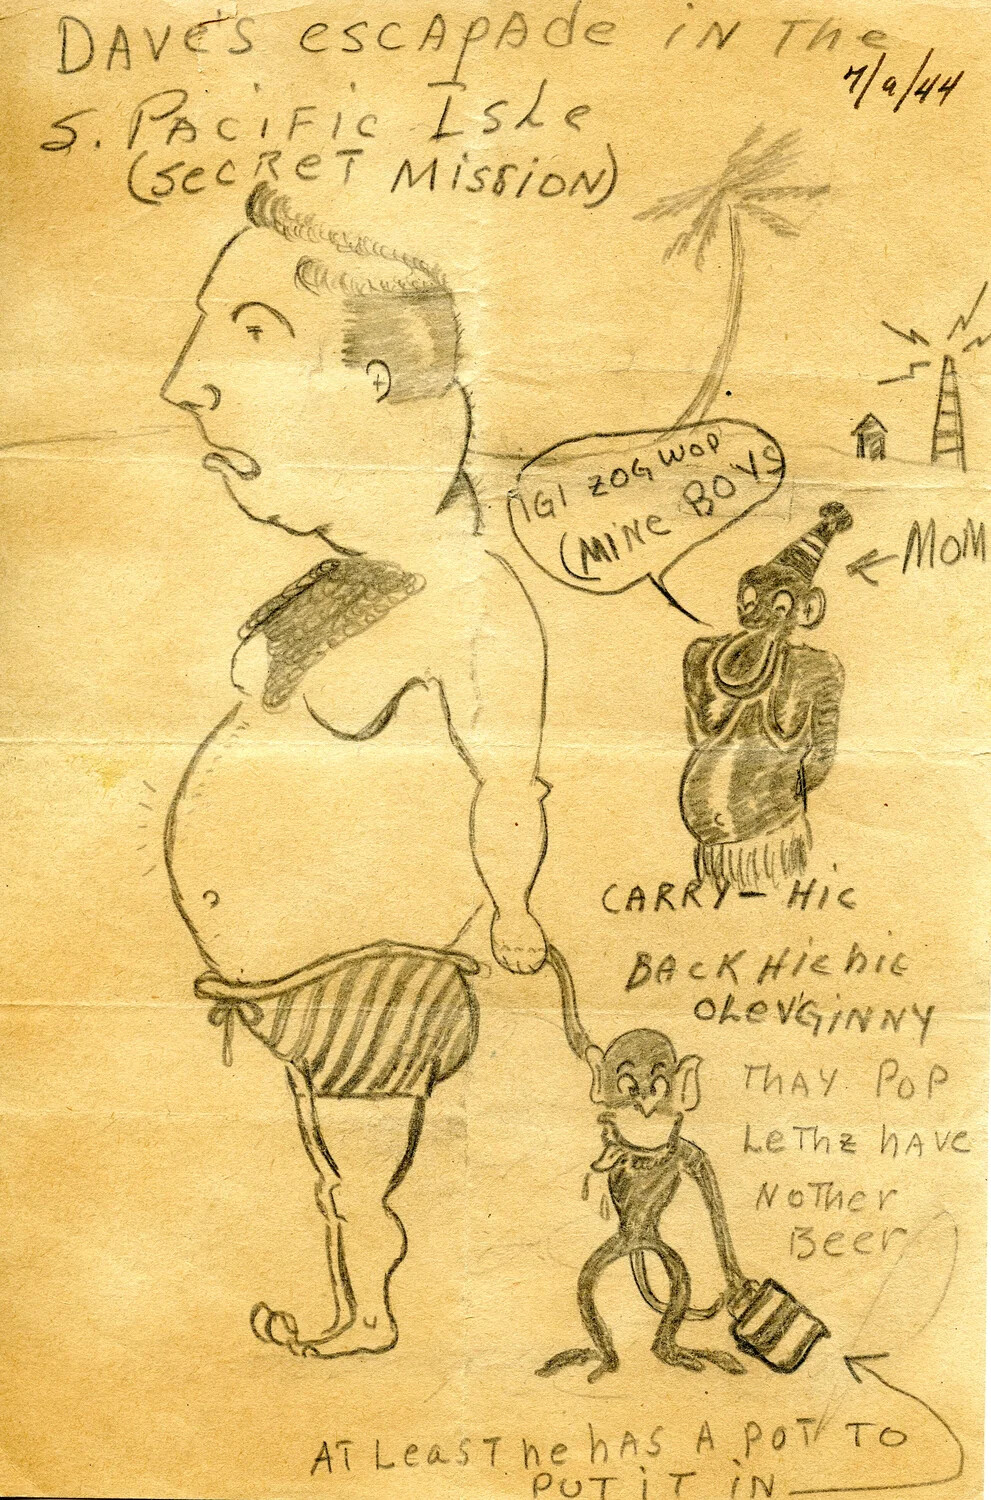 DAVe'S escAPAde iN The
7/9/44
S. PAciFic IsLe
(SecReT MissioN)
IGI ZOG WOP
(MiNe BOYS
MOM
CARRY- Hic
BAcK Hic hic
OLeV'GiNNY
THAY POP
LeThz hAVe
NoTher
Beer
AT LeasT he hAS A POT TO
PUT iT iN